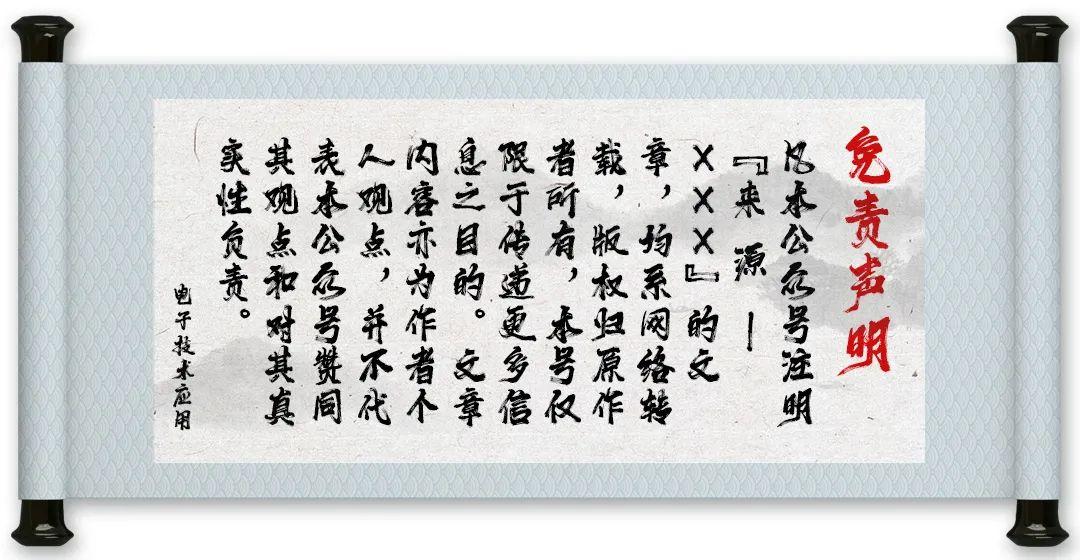 免责声明
凡本公众号注明
『来源—
XXX』的文
章，均系网络转
载，版权归原作
者所有，本号仅
限于传递更多信
息之目的。文章
内容亦为作者个
人观点，并不代
表本公众号赞同
其观点和对其真
实性负责。
电子技术应用